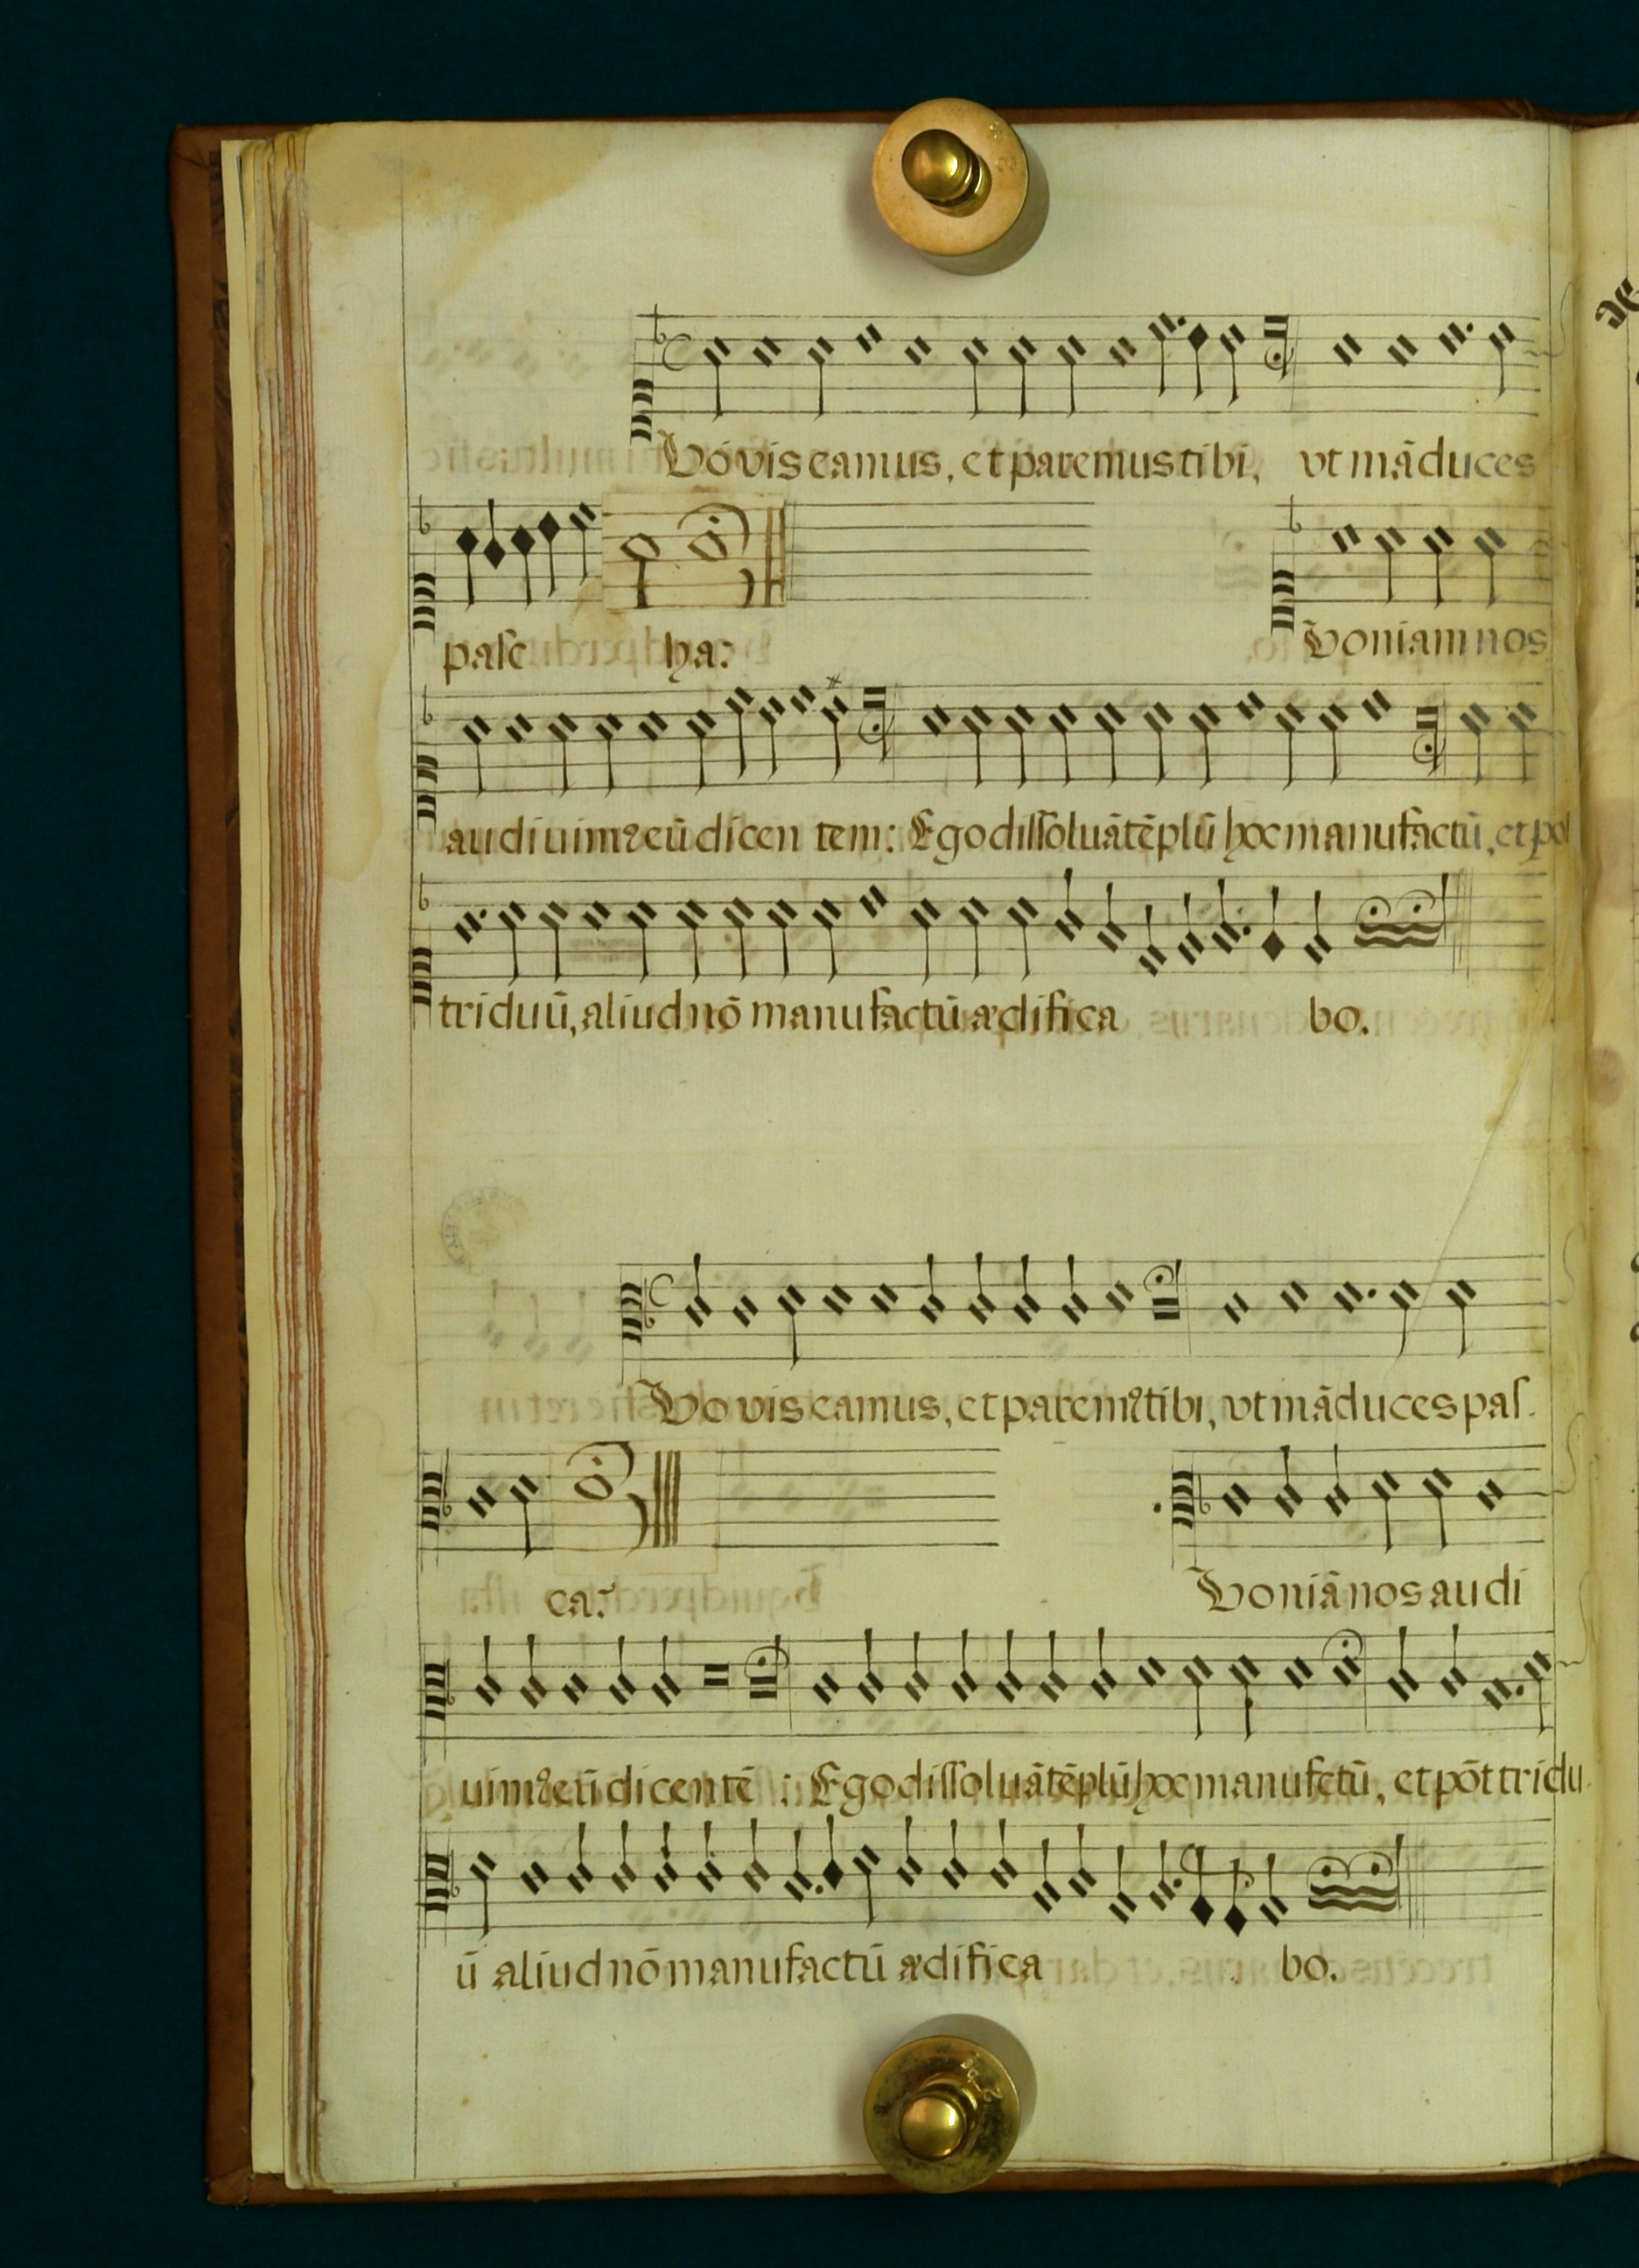 Vó vis eamus, et paremus tibi, vt mãduces
pasc ha:
Voniam nos
audiuimꝰ eũ dicen tem: Ego dissoluã tẽplũ hoc manufactũ, et post
triduũ, aliud nõ manufactũ ædifica bo.
Vo vis eamus, et paremꝰ tibi, vt mãduces pas
ca:
Voniã nos audi
uimꝰ eũ dicentẽ : Ego dissoluã tẽplũ hoc manufctũ, et põt tridu
ũ aliud nõ manufactũ ædifica bo.